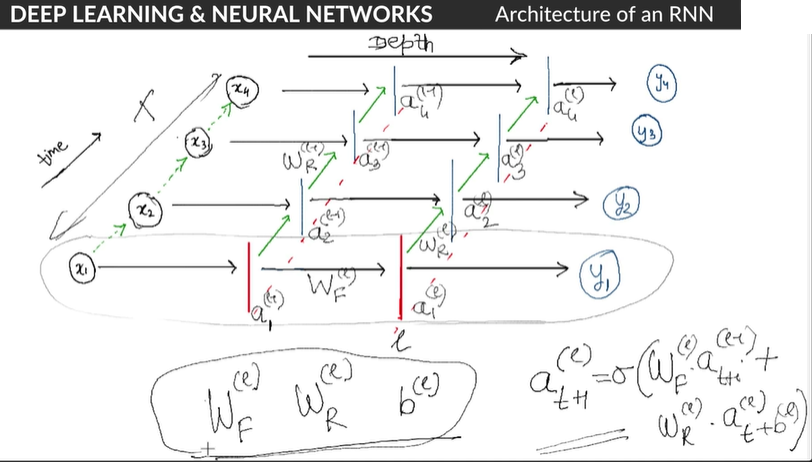 DEEP LEARNING & NEURAL NETWORKS
Architecture of an RNN
Depth
time
X
x₄ a₄^(l-1) a₄^(l) y₄
x₃ W_R^(l-1) a₃^(l-1) a₃^(l) y₃
x₂ a₂^(l-1) a₂^(l) y₂
W_R^(l)
x₁ W_F^(l) y₁
a₁^(l-1) a₁^(l)
l
W_F^(l) W_R^(l) b^(l)
a_{t+1}^(l) = σ(W_F^(l) · a_{t+1}^(l-1) +
W_R^(l) · a_t^(l) + b^(l))